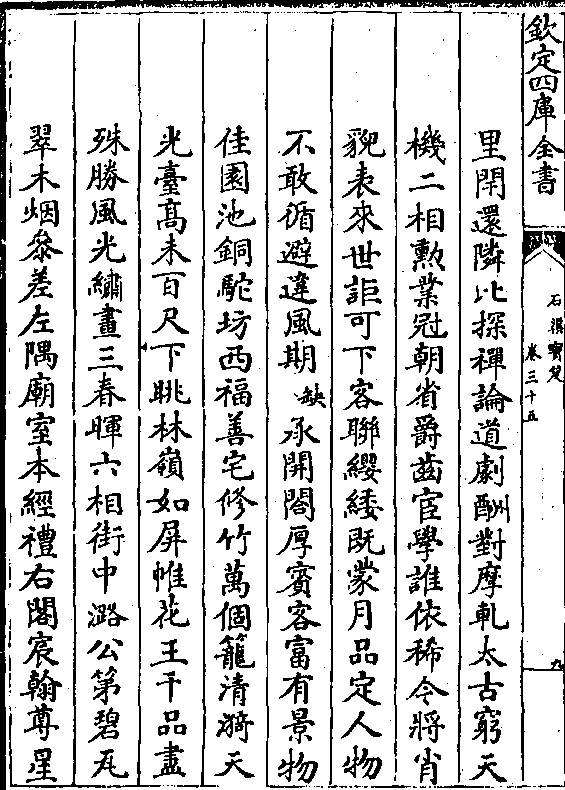 欽定四庫全書
石渠寶笈
卷三十五
九
里閈還隣比探禪論道劇酬對摩軋太古窮天
機二相勲業冠朝省爵齒宦學誰依稀令將肖
貌表來世詎可下客聯纓緌既蒙月品定人物
不敢循避違風期缺承開閤厚賓客富有景物
佳園池銅駝坊西福善宅修竹萬個籠清漪天
光臺髙未百尺下眺林嶺如屏帷花王千品盡
殊勝風光繡畫三春暉六相街中潞公第碧瓦
翠木烟叅差左隅廟室本經禮右閣宸翰尊星